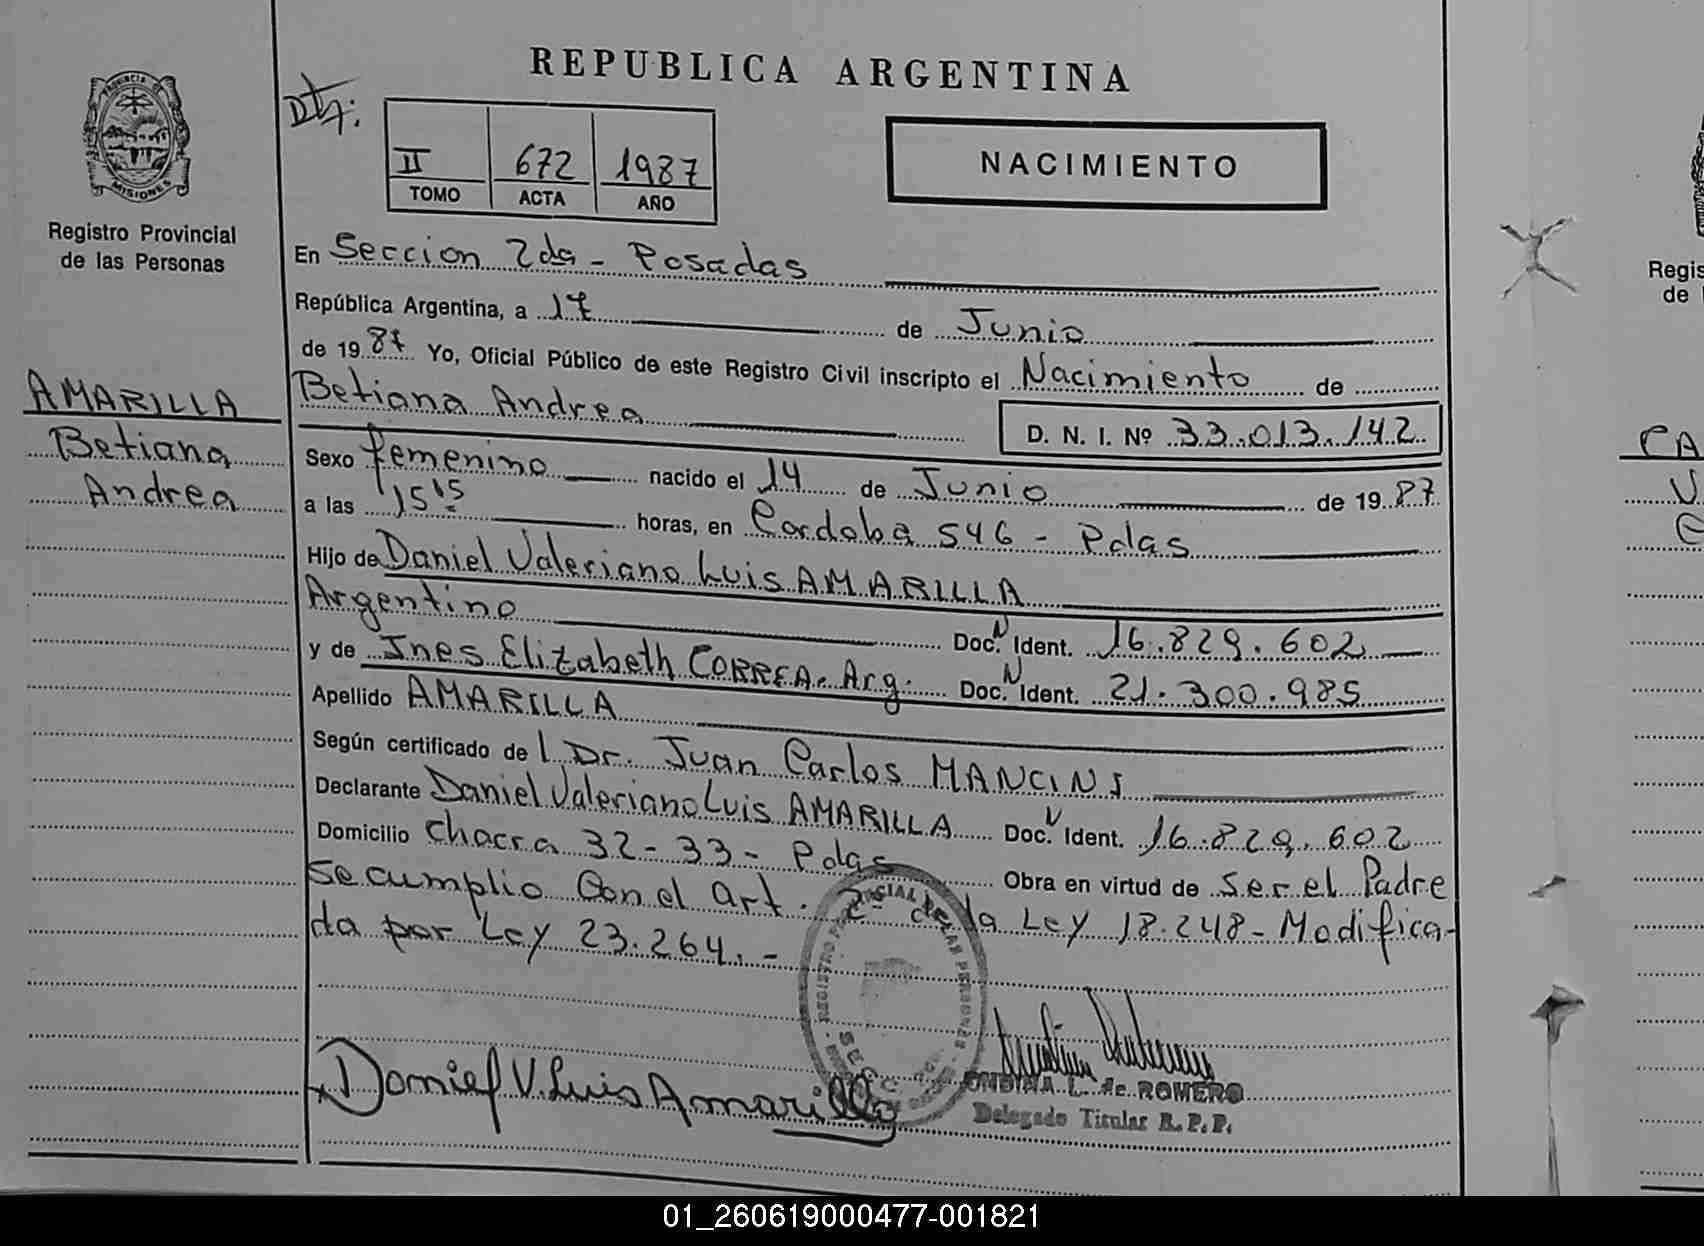 REPUBLICA ARGENTINA
PROVINCIA DE
MISIONES
Registro Provincial
de las Personas
II 672 1987
TOMO ACTA AÑO
NACIMIENTO
En Seccion 2da - Posadas
República Argentina, a 17 de Junio
de 1987 Yo, Oficial Público de este Registro Civil inscripto el Nacimiento de
AMARILLA
Betiana
Andrea
Betiana Andrea
D. N. I. Nº 33.013.142
Sexo femenino nacido el 14 de Junio de 1987
a las 15 15 horas, en Cordoba 546 - Pdas
Hijo de Daniel Valeriano Luis AMARILLA
Argentino Doc. N Ident. 16.829.602
y de Ines Elizabeth CORREA. Arg. Doc. N Ident. 21.300.985
Apellido AMARILLA
Según certificado de l Dr. Juan Carlos MANCINI
Declarante Daniel Valeriano Luis AMARILLA Doc. N Ident. 16.829.602
Domicilio Chacra 32-33- Pdas Obra en virtud de Ser el Padre
Se cumplio Con el art. 2º de la Ley 18.248- Modifica-
da por Ley 23.264.-
Daniel V. Luis Amarilla
L. de ROMERO
Delegado Titular R. P. P.
Regis
de
CA
01_260619000477-001821